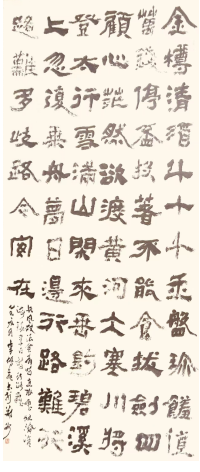 金樽清酒斗十千玉盤珍饈值
萬錢停盃投箸不能食拔劍四
顧心茫然欲渡黃河冰塞川將
登太行雪滿山閒來垂釣碧溪
上忽復乘舟夢日邊行路難
路難多歧路今安在